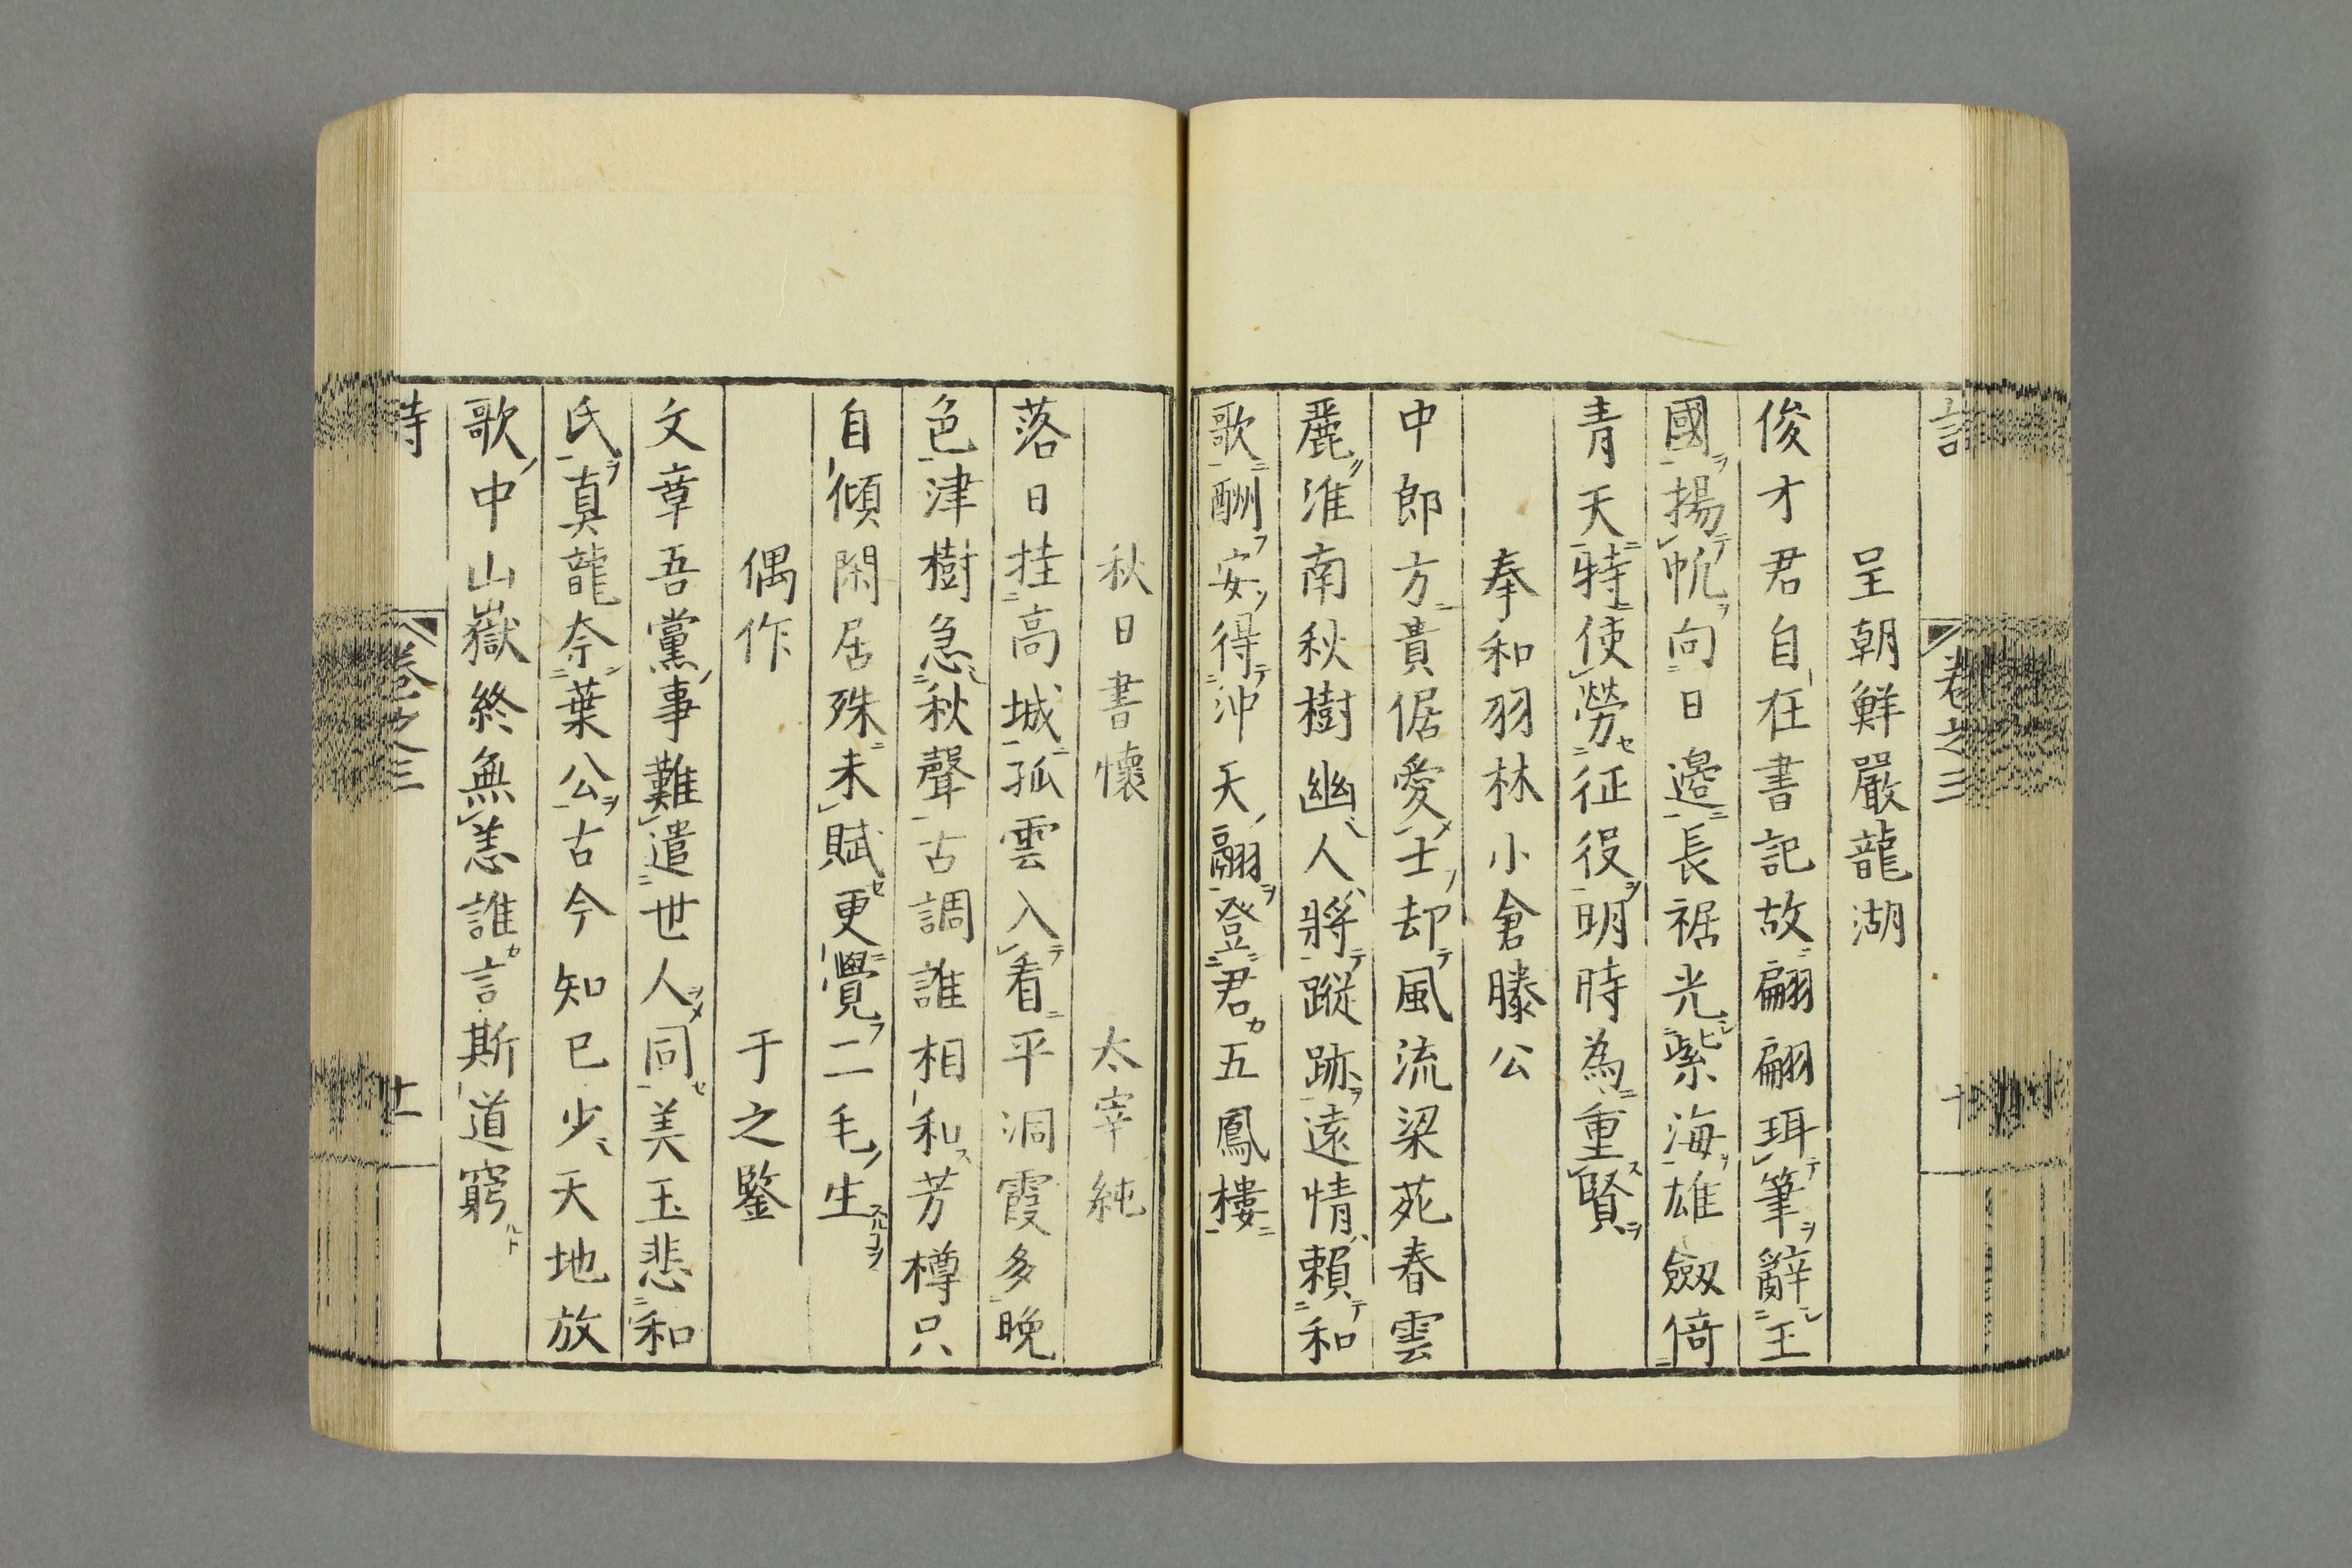 卷之三
十
呈朝鮮嚴龍湖
俊才君自在書記故翩翩珥筆辭玉
國揚帆向日邊長裾光紫海雄劔倚
青天特使勞征役明時為重賢
奉和羽林小倉滕公
中郎方貴倨愛士却風流梁苑春雲
麗淮南秋樹幽人將蹤跡遠情賴和
歌酬安得沖天翮登君五鳳樓
秋日書懷　太宰純
落日挂高城孤雲入看平洞霞多晚
色津樹急秋聲古調誰相和芳樽只
自傾閑居殊未賦更覺二毛生
偶作　于之鑒
文章吾黨事難遣世人同美玉悲和
氏真龍奈葉公古今知已少天地放
歌中山嶽終無恙誰言斯道窮
詩
卷之三
十一